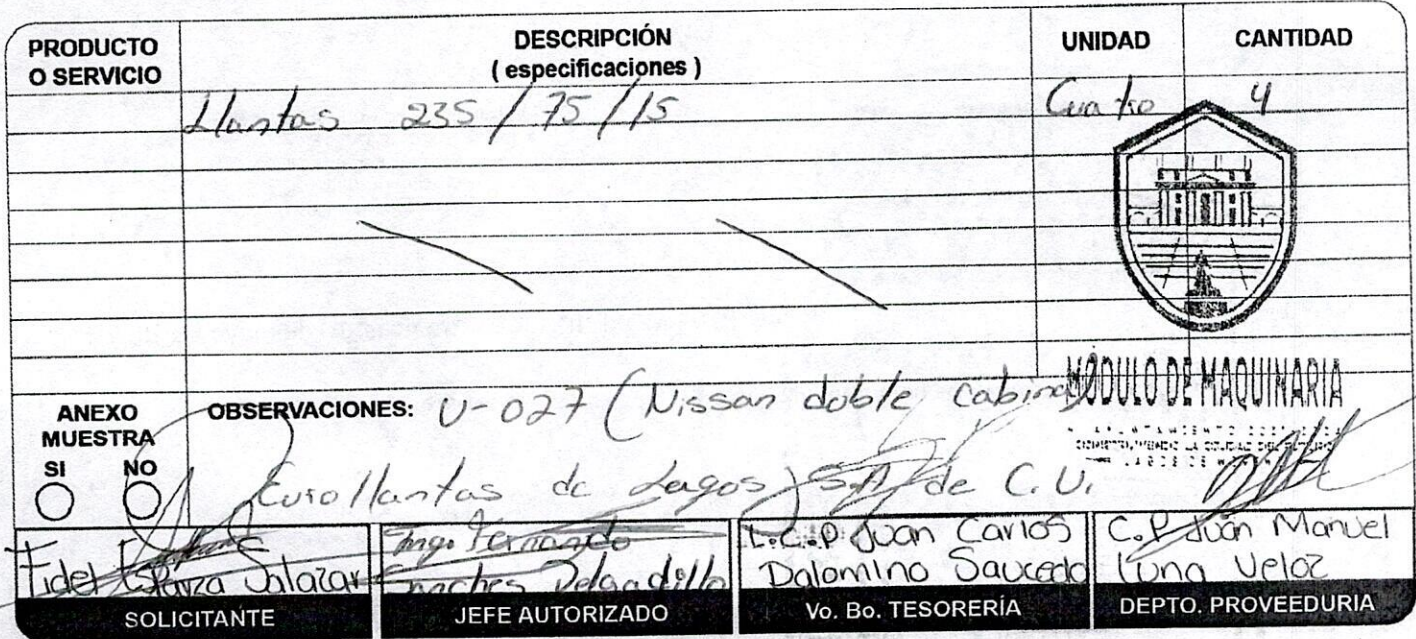 PRODUCTO O SERVICIO
DESCRIPCIÓN
( especificaciones )
UNIDAD
CANTIDAD
Llantas 235/75/15
Cuatro
4
MÓDULO DE MAQUINARIA
ANEXO MUESTRA
SI NO
OBSERVACIONES: U-027 (Nissan doble cabina)
Eurollantas de Lagos S.A de C.V.
Fidel Esparza Salazar
SOLICITANTE
Ing. Fernando
Sanches Delgadillo
JEFE AUTORIZADO
L.C.P Juan Carlos
Palomino Saucedo
Vo. Bo. TESORERÍA
C.P Juan Manuel
Luna Veloz
DEPTO. PROVEEDURIA